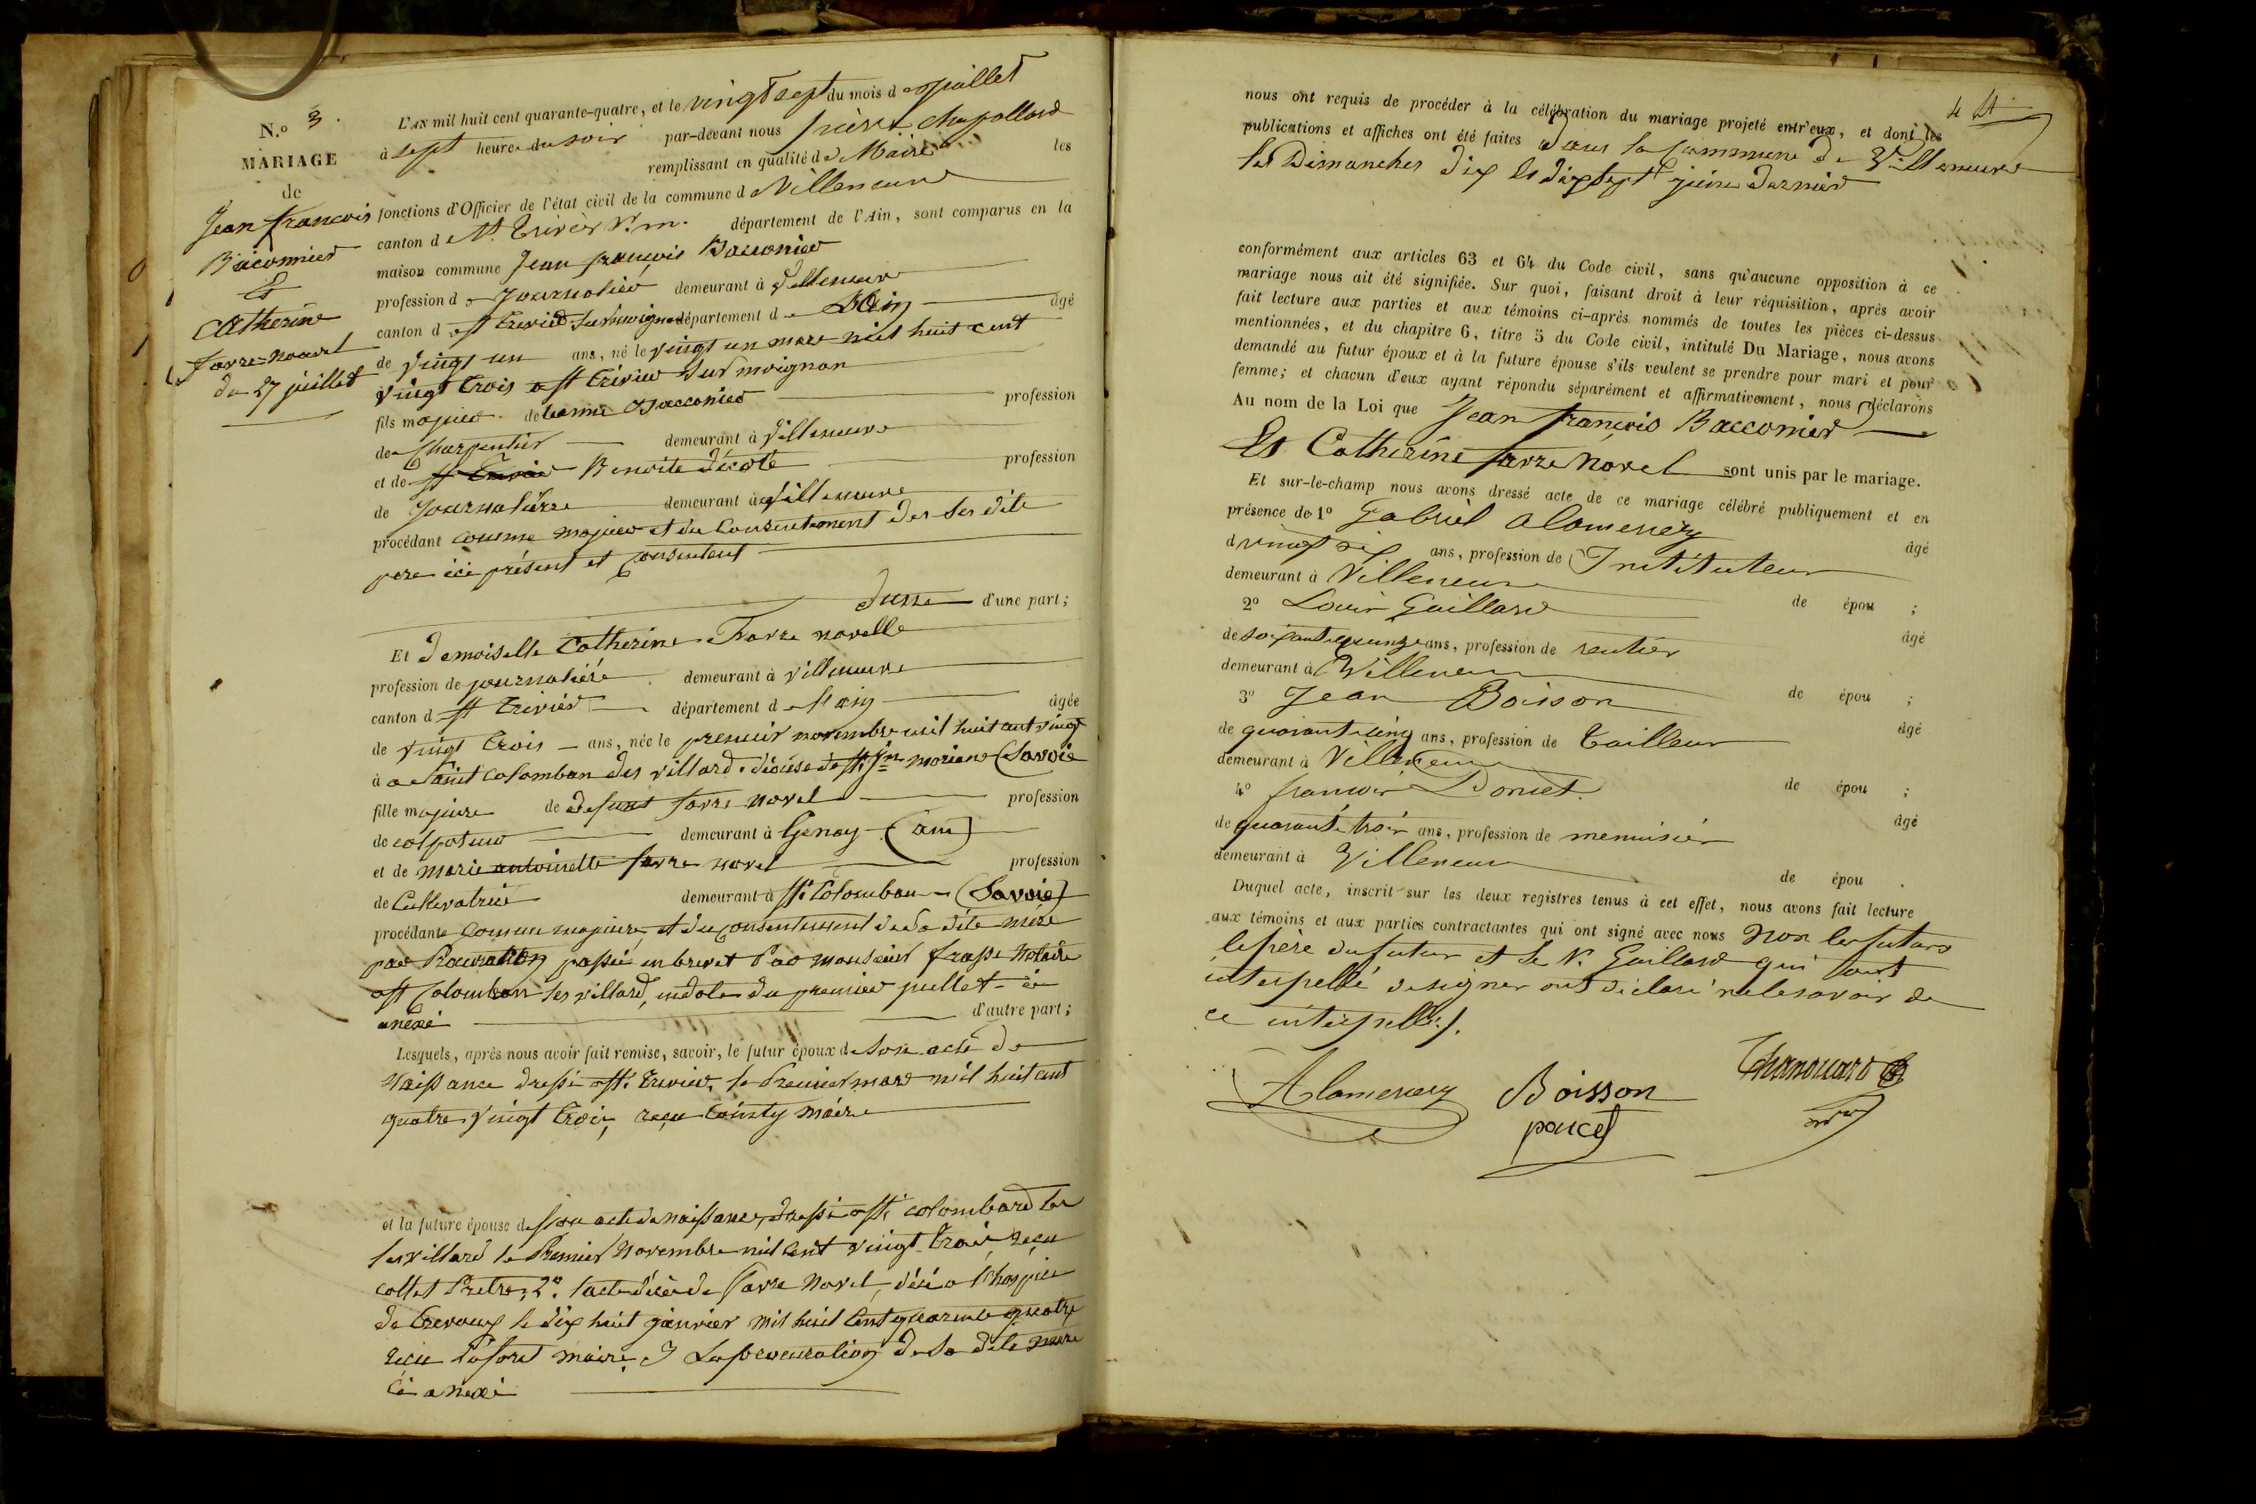 N.o 3.
MARIAGE
de
Jean françois
Bacconnier
Et
Catherine
favre-nouvel
du 27 juillet
L'AN mil huit cent quarante-quatre, et le vingt sept du mois de juillet
à sept heure du soir par-devant nous
remplissant en qualité de Maire les
fonctions d'Officier de l'état civil de la commune de Villeneuve
canton de St. Trivier département de l'Ain, sont comparus en la
maison commune Jean françois Bacconier
profession de Journalier demeurant à Villeneuve
canton de st trivier sur moignan département de L'Ain âgé
de vingt un ans, né le vingt un mars mil huit cent
vingt trois a st trivier sur moignan
fils majeur de Bacconier profession
de Charpentier demeurant à Villeneuve
et de Benoite profession
de Journalière demeurant à Villeneuve
procédant comme majeur et du consentement des ses dits
pere ici présent et Consentent
d'une part;
Et demoiselle Catherine Favre novelle
profession de journalière demeurant à villeneuve
canton de st trivier département de l'ain âgée
de vingt trois ans, née le premier novembre mil huit cent vingt
à a Saint Colomban des villard diocése de St Jn moriene (Savoie
fille majeure de defunt favre novel profession
de colpoteur demeurant à Genay (ain)
et de marie antoinette favre novel profession
de Cultivatrice demeurant à St Colomban (Savoie)
procédante comme majeure et du consentement de sa dite mère
par passé en brevet Par Notaire
a st Colomban les villard, en date du premier juillet ci
anexé d'autre part;
Lesquels, après nous avoir fait remise, savoir, le futur époux de son acte de
Naissance dressé a st trivier, le Premier mars mil huit cent
quatre vingt trois, reçu maire
et la future épouse de son acte de naissance, dressé a st colombard les
les villard le Premier Novembre mil cent vingt trois reçu
collet Pretre, 2° l'acte décè de favre Novel, décé a l'hospice
de trevoux le dix huit janvier mil huit cent quarante quatre
reçu maire, 3 La procuration de sa dite mere
ci anexé
4
nous ont requis de procéder à la célébration du mariage projeté entr'eux, et dont les
publications et affiches ont été faites dans la commune de Villeneuve
les Dimanches dix et dixsept juin dernier
conformément aux articles 63 et 64 du Code civil, sans qu'aucune opposition à ce
mariage nous ait été signifiée. Sur quoi, faisant droit à leur réquisition, après avoir
fait lecture aux parties et aux témoins ci-après nommés de toutes les pièces ci-dessus
mentionnées, et du chapitre 6, titre 5 du Code civil, intitulé Du Mariage, nous avons
demandé au futur époux et à la future épouse s'ils veulent se prendre pour mari et pour
femme; et chacun d'eux ayant répondu séparément et affirmativement, nous déclarons
Au nom de la Loi que Jean françois Bacconier
Et Catherine favre Novel sont unis par le mariage.
Et sur-le-champ nous avons dressé acte de ce mariage célébré publiquement et en
présence de 1° Gabriel Alamercery
âgé
d vingt six ans, profession de Instituteur
demeurant à Villeneuve
de épou ;
2° Louis Gaillard
âgé
de soixante quinze ans, profession de rentier
demeurant à Villeneuve
de épou ;
3° Jean Boisson
âgé
de quarante cinq ans, profession de tailleur
demeurant à Villeneuve
de épou ;
4° françois Poncet
âgé
de quarante trois ans, profession de menuisier
demeurant à Villeneuve
de épou .
Duquel acte, inscrit sur les deux registres tenus à cet effet, nous avons fait lecture
aux témoins et aux parties contractantes qui ont signé avec nous non les futurs
le père du futur et le Gaillard qui tous
interpellé de signer ont déclaré ne le savoir de
ce interpellés.
Alamercery Boisson
poncet